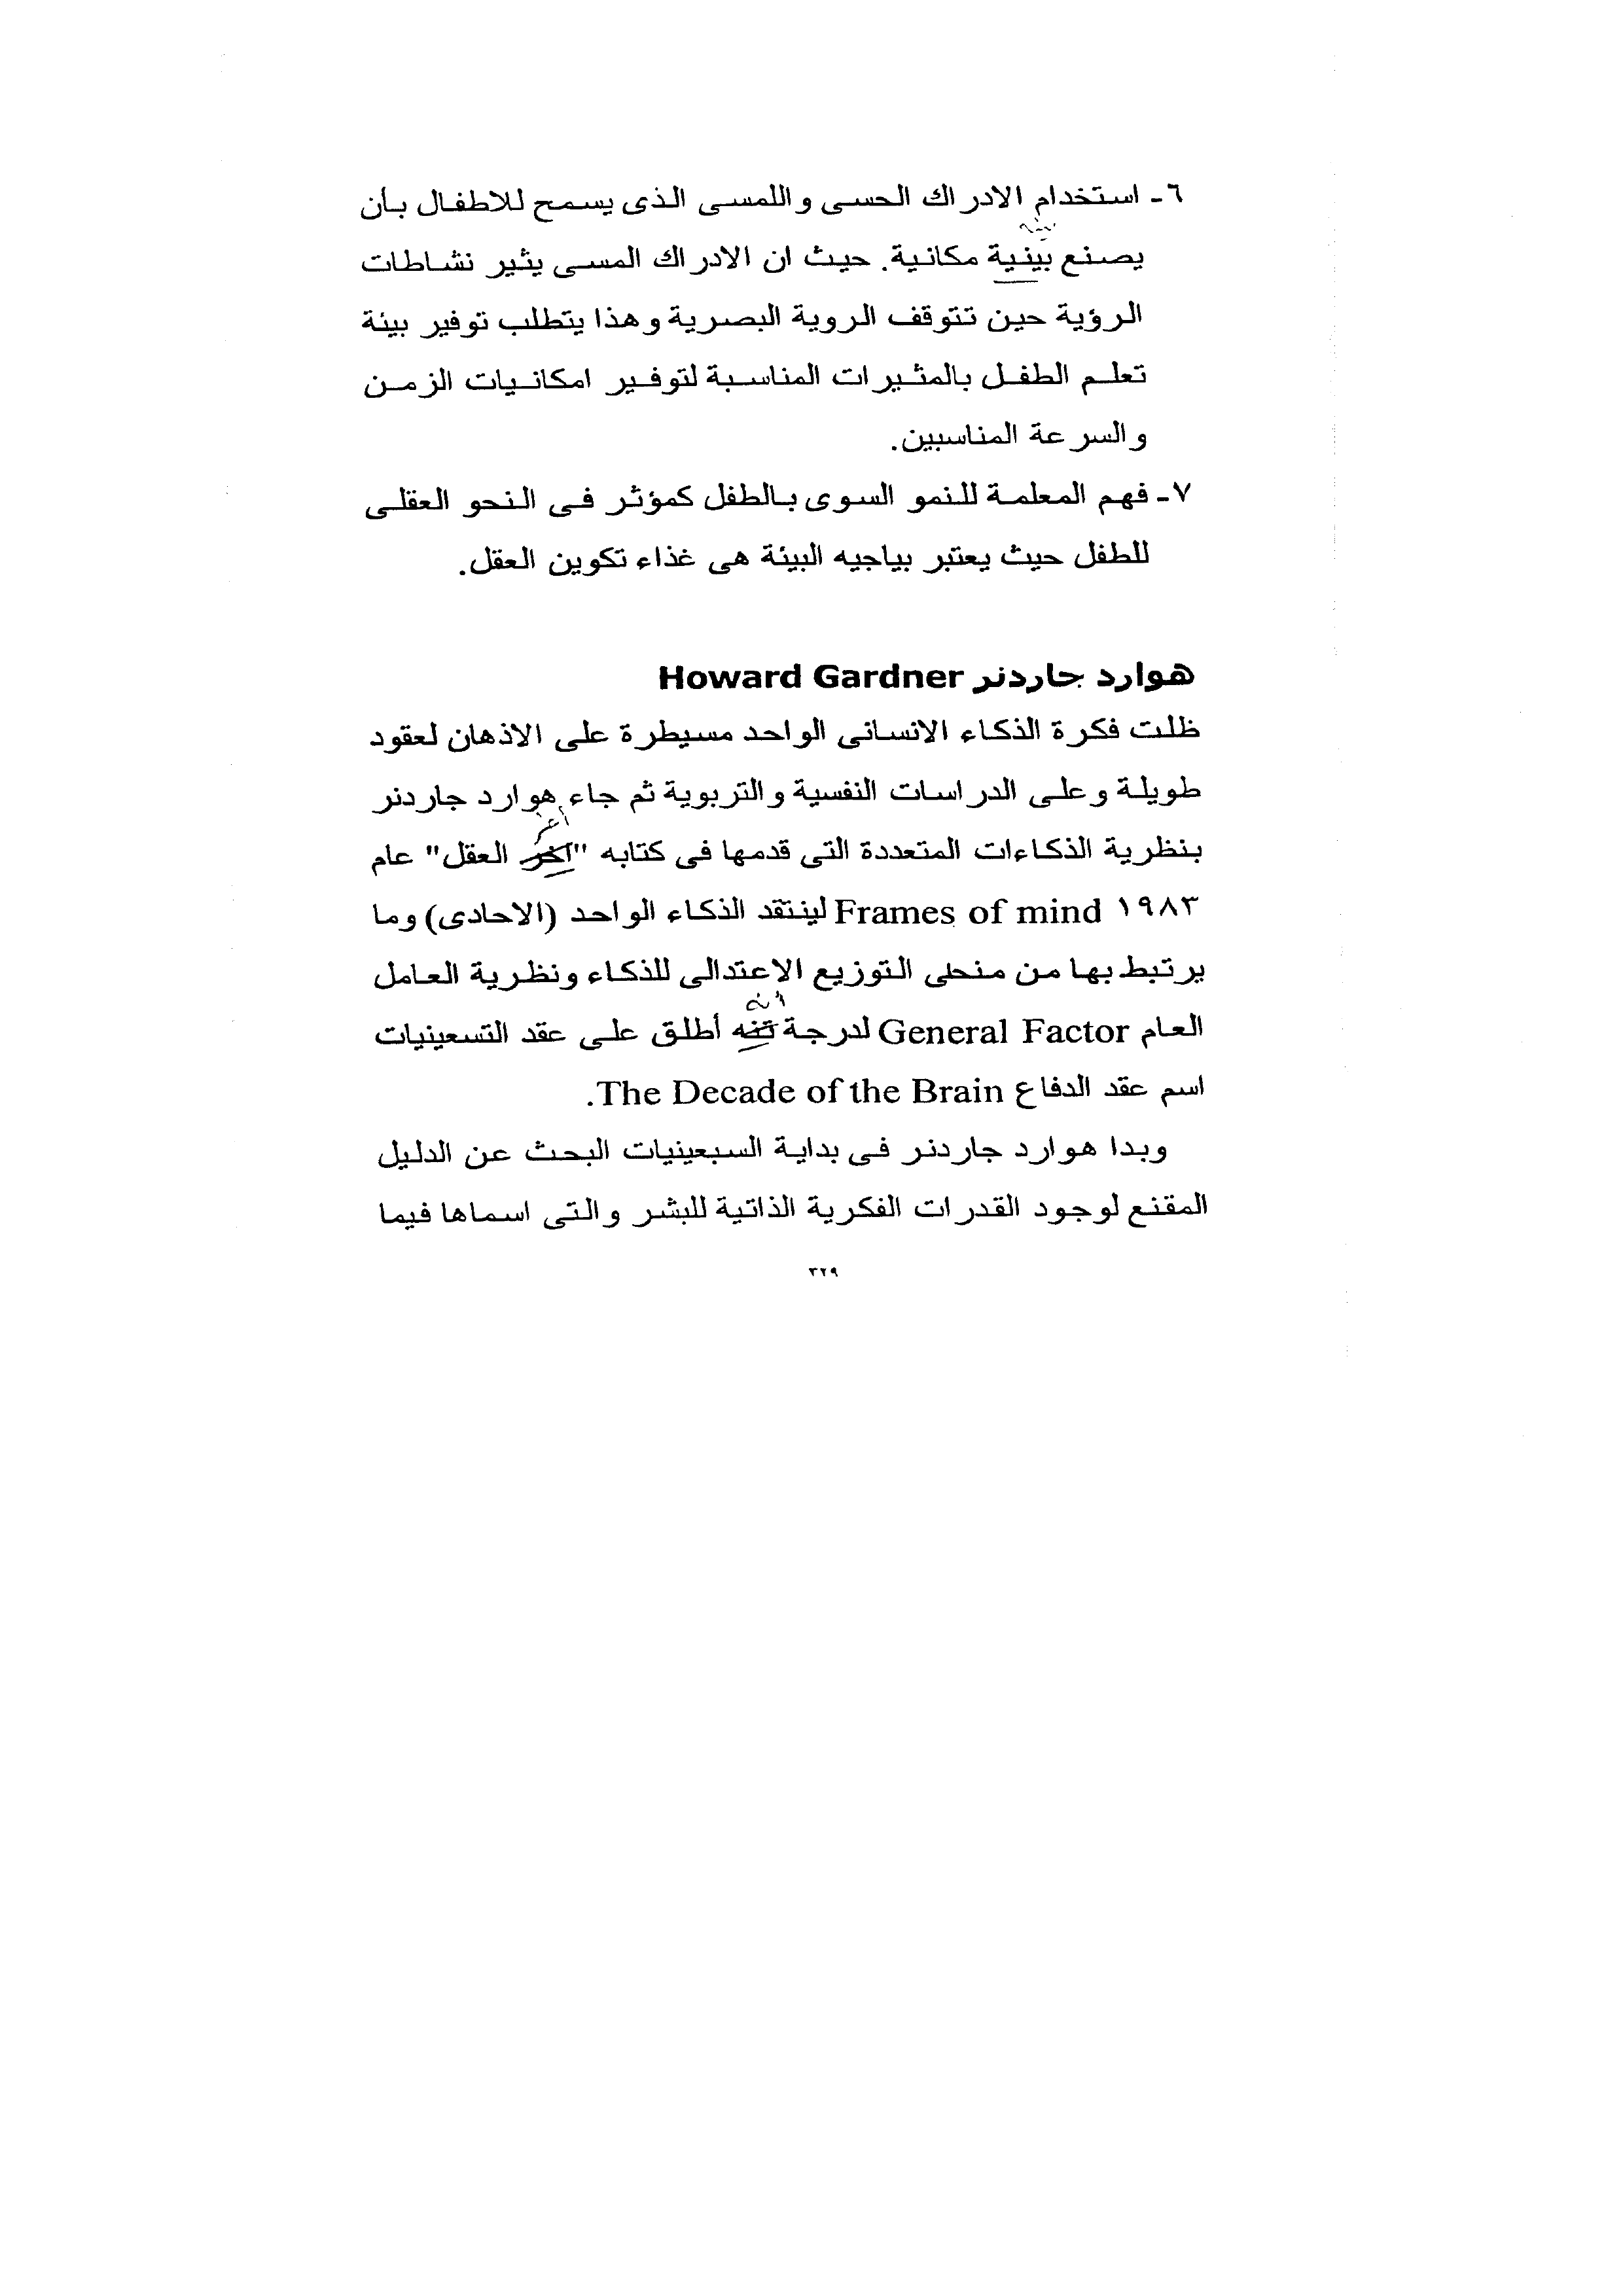 ٦- استخدام الادراك الحسى واللمسى الذى يسمح للاطفال بأن
يصنع بينية مكانية. حيث ان الادراك المسى يثير نشاطات
الرؤية حين تتوقف الروية البصرية وهذا يتطلب توفير بيئة
تعلم الطفل بالمثيرات المناسبة لتوفير امكانيات الزمن
والسرعة المناسبين.
٧- فهم المعلمة للنمو السوى بالطفل كمؤثر فى النحو العقلى
للطفل حيث يعتبر بياجيه البيئة هى غذاء تكوين العقل.
هوارد جاردنر Howard Gardner
ظلت فكرة الذكاء الانسانى الواحد مسيطرة على الاذهان لعقود
طويلة وعلى الدراسات النفسية والتربوية ثم جاء هوارد جاردنر
بنظرية الذكاءات المتعددة التى قدمها فى كتابه "آخر العقل" عام
١٩٨٣ Frames of mind لينتقد الذكاء الواحد (الاحادى) وما
يرتبط بها من منحى التوزيع الاعتدالى للذكاء ونظرية العامل
أنه
العام General Factor لدرجة تنه أطلق على عقد التسعينيات
اسم عقد الدفاع The Decade of the Brain.
وبدا هوارد جاردنر فى بداية السبعينيات البحث عن الدليل
المقنع لوجود القدرات الفكرية الذاتية للبشر والتى اسماها فيما
٣٢٩